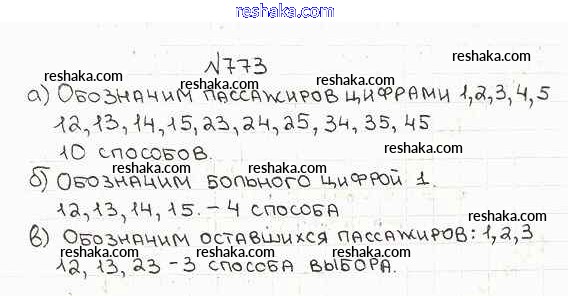 reshaka.com
№773
а) Обозначим пассажиров цифрами 1,2,3,4,5
12, 13, 14, 15, 23, 24, 25, 34, 35, 45
10 способов.
б) Обозначим больного цифрой 1.
12, 13, 14, 15. - 4 способа
в) Обозначим оставшихся пассажиров: 1, 2, 3
12, 13, 23 - 3 способа выбора.
reshaka.com
reshaka.com
reshaka.com
reshaka.com
reshaka.com
reshaka.com
reshaka.com
reshaka.com
reshaka.com
reshaka.com
reshaka.com
reshaka.com
reshaka.com
reshaka.com